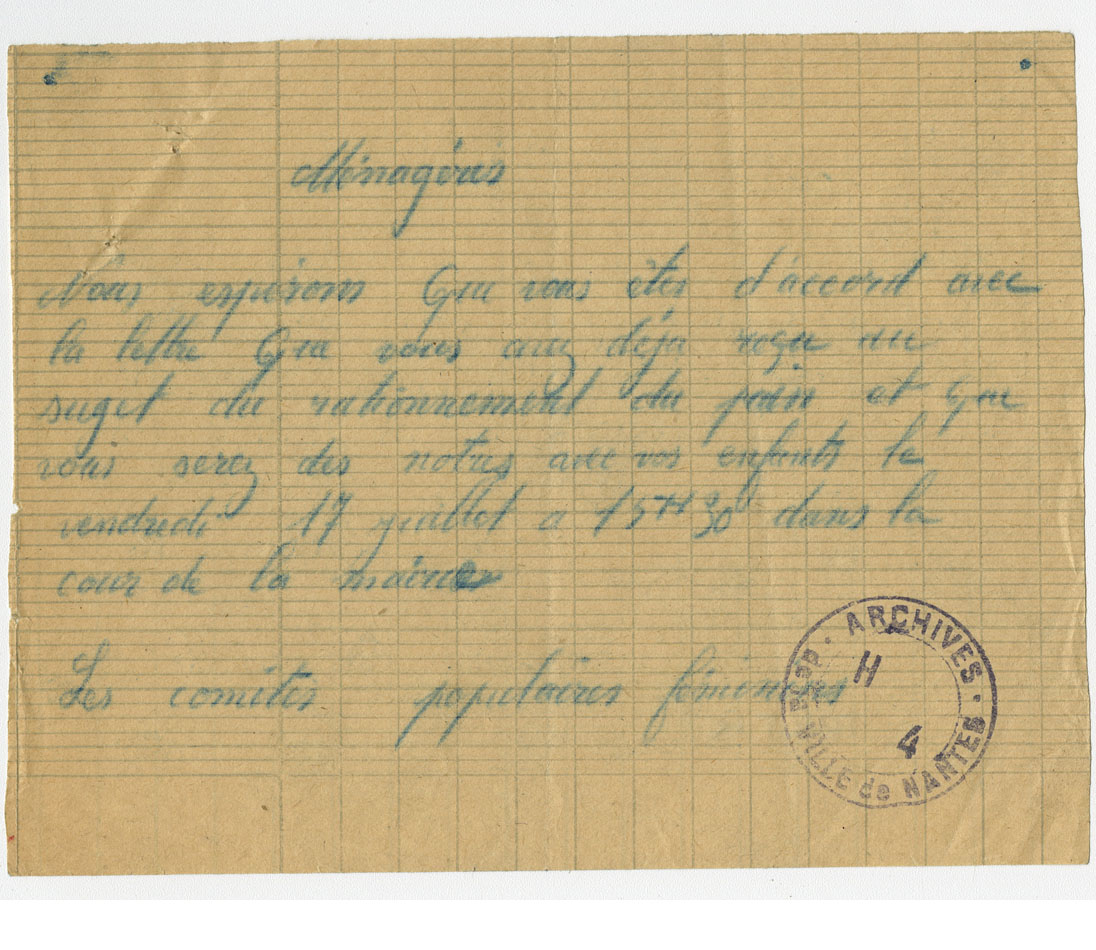 Ménagères
Nous espérons Que vous êtes d'accord avec
la lettre Que vous avez déja reçu au
suget du rationnement du pain et que
vous serez des notres avec vos enfants le
vendredi 17 juillet a 15 H 30 dans la
cour de la mairie
Les comités populaires féminins
ARCHIVES
H
4
VILLE de NANTES